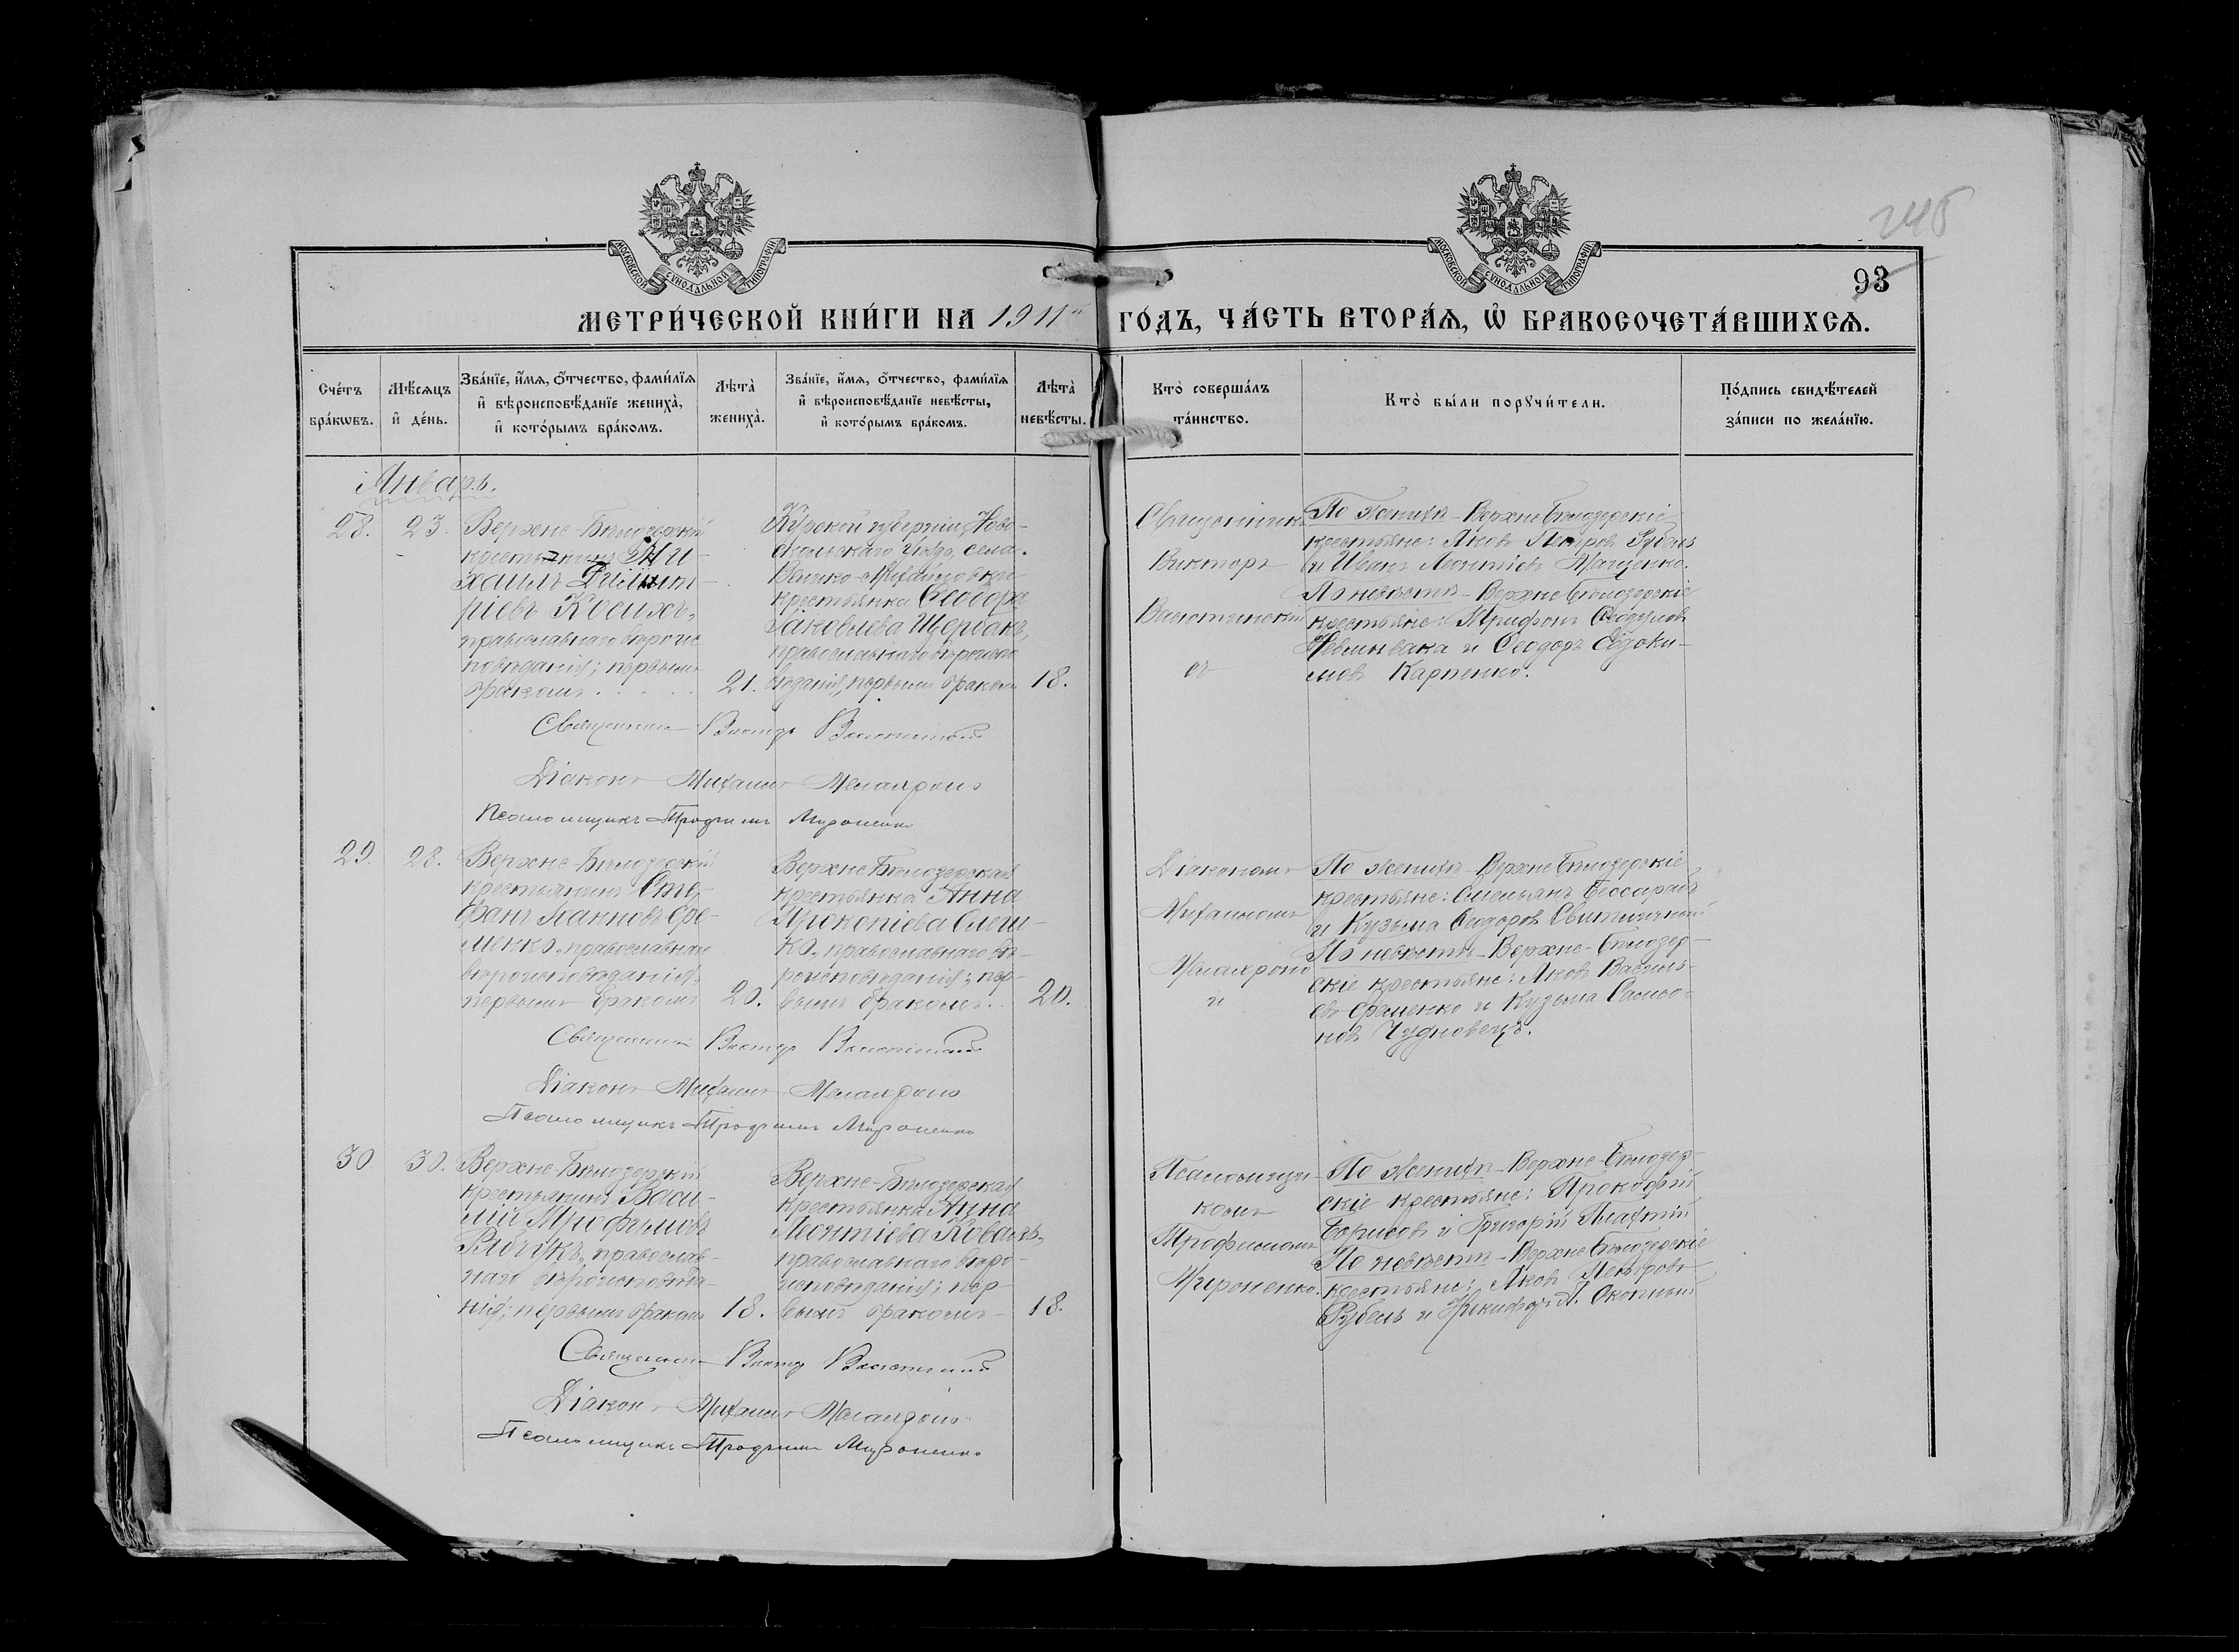 МОСКОВСКОЙ СѴНОДАЛЬНОЙ ТИПОГРАФІИ
МОСКОВСКОЙ СѴНОДАЛЬНОЙ ТИПОГРАФІИ
93
МЕТРИ́ЧЕСКОЙ КНИ́ГИ НА 1911 ГО́ДЪ, ЧА́СТЬ ВТОРА́Ѧ, Ѽ БРАКОСОЧЕТА́ВШИХСѦ.
Сче́тъ бра́кωвъ.
Мѣ́сѧцъ и҆ де́нь.
Зва́нїе, и҆́мѧ, ѻ҆́тчество, фами́лїѧ
и҆ вѣроисповѣ́данїе жениха̀,
и҆ кото́рымъ бра́комъ.
Лѣта̀ жениха̀.
Зва́нїе, и҆́мѧ, ѻ҆́тчество, фами́лїѧ
и҆ вѣроисповѣ́данїе невѣ́сты,
и҆ кото́рымъ бра́комъ.
Лѣта̀ невѣ́сты.
Кто̀ соверша́лъ
та́инство.
Кто̀ бы́ли порꙋчи́тели.
По́дпись свидѣ́телей
за́писи по жела́нїю.
Январь.
28.
23.
Верхне-Бѣлозерскій
крестьянинъ Ми-
хаилъ Димит-
ріевъ Косихъ,
православнаго вѣроис
повѣданія; первымъ
бракомъ
21.
Курской губерніи, Ново-
оскольскаго уѣзда, села
Велико-Михайловки
крестьянка Ѳеодора
Іаковлева Щербакъ,
православнаго вѣроиспо
вѣданія, первымъ бракомъ
18.
Священникъ
Викторъ
По женихѣ - Верхне Бѣлозерскіе
крестьяне: Яковъ Петровъ Рубель
и Иванъ Леонтіевъ
По невѣстѣ - Верхне Бѣлозерскіе
крестьяне: Трифонъ Ѳеодоровъ
и Ѳеодоръ Евдоки-
мовъ Карпенко.
Священникъ Викторъ
Діаконъ Михаилъ
Псаломщикъ Трофимъ Мироненко
29.
28.
Верхне-Бѣлозерскій
крестьянинъ Сте-
фанъ
православнаго
вѣроисповѣданія,
первымъ бракомъ
20.
Верхне Бѣлозерская
крестьянка Анна
Прокопіева
православнаго вѣ-
роисповѣданія; пер-
вымъ бракомъ.
20.
Діакономъ
Михаиломъ
и
По женихѣ - Верхне Бѣлозерскіе
крестьяне: Емельянъ Бессарабъ
и Кузьма Сидоровъ
По невѣстѣ - Верхне-Бѣлозер-
скіе крестьяне: Яковъ Василь-
евъ и Кузьма Самсо-
новъ Чудновецъ.
Священникъ Викторъ
Діаконъ Михаилъ
Псаломщикъ Трофимъ Мироненко
30
30.
Верхне-Бѣлозерскій
крестьянинъ Васи-
лій Трофимовъ
Рябчукъ, православ-
наго вѣроисповѣда-
нія; первымъ бракомъ
18.
Верхне-Бѣлозерская
крестьянка Анна
Леонтіева Коваль,
православнаго вѣро-
исповѣданія; пер-
вымъ бракомъ
18.
Псаломщи-
комъ
Трофимомъ
Мироненко.
По женихѣ - Верхне-Бѣлозер-
скіе крестьяне: Прокофій
Борисовъ и Григорій
По невѣстѣ - Верхне Бѣлозерскіе
крестьяне: Яковъ Петровъ
Рубель и Окопный
Священникъ Викторъ
Діаконъ Михаилъ
Псаломщикъ Трофимъ Мироненко